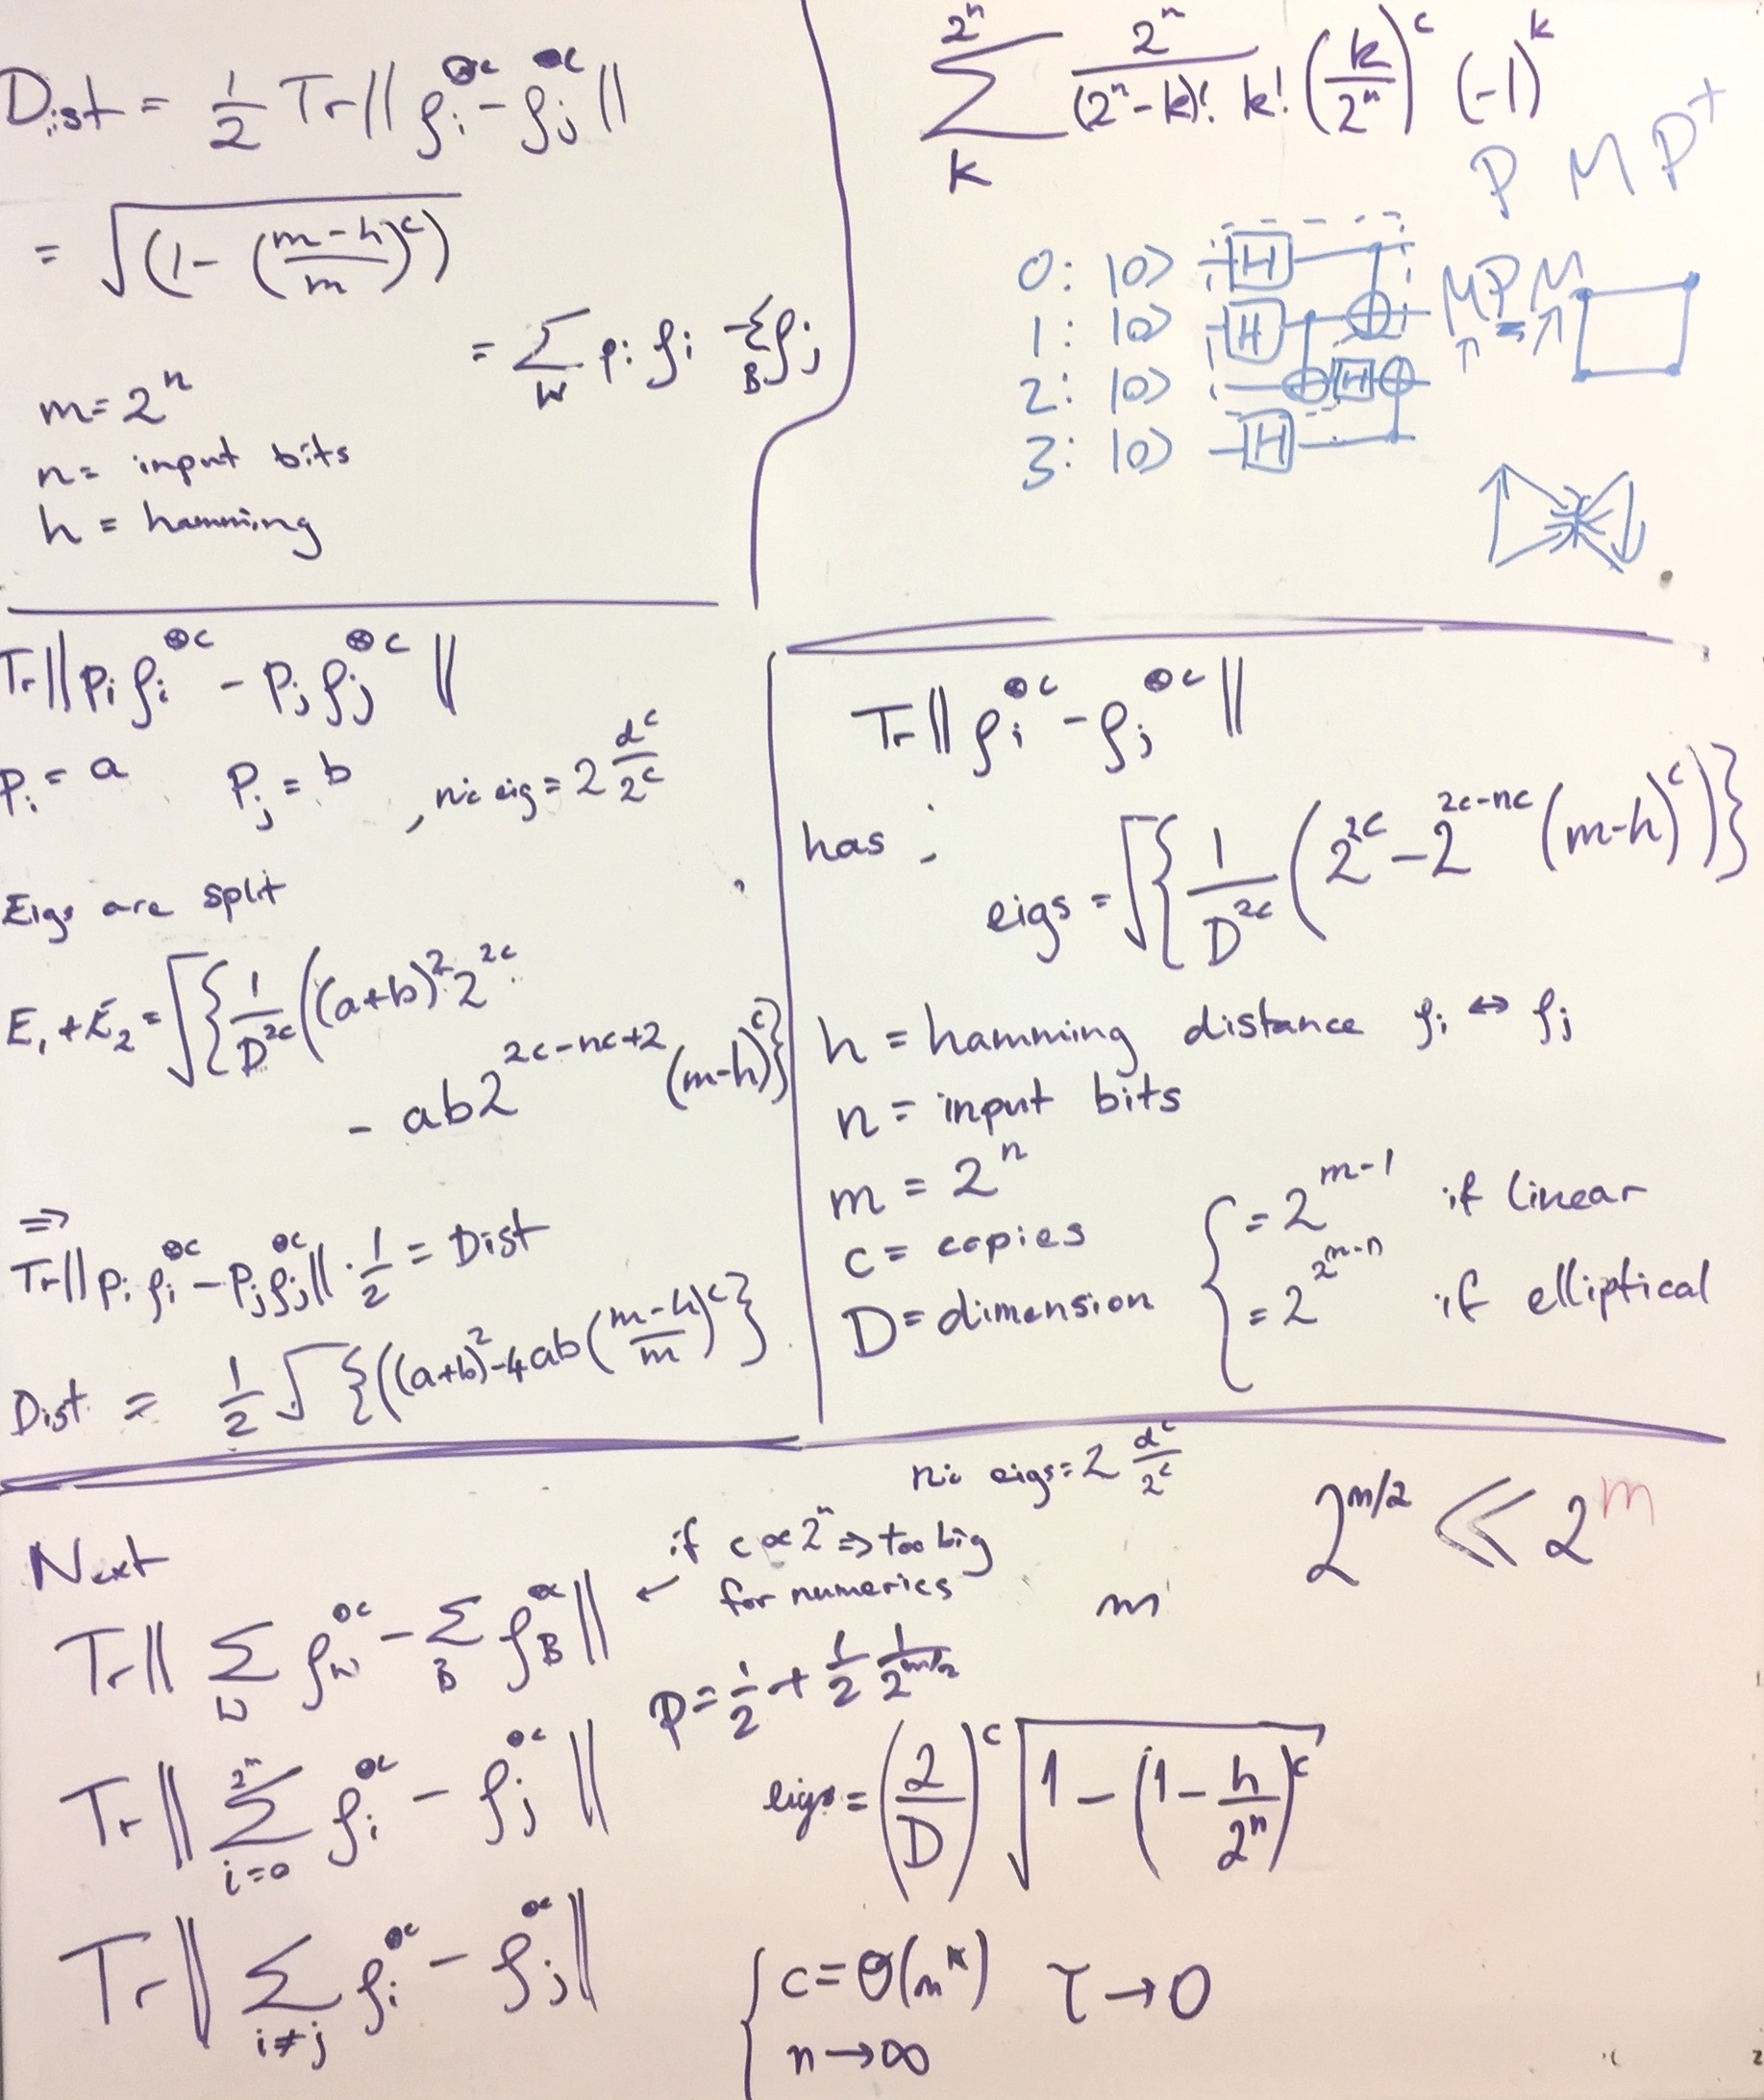 Dist = 1/2 Tr‖ρᵢ^⊗c − ρⱼ^⊗c‖
= √(1 − ((m−h)/m)^c)
= Σ_W pᵢ ρᵢ − Σ_B ρⱼ
m = 2^n
n = input bits
h = hamming
Σ_k^{2^n} 2^n/((2^n−k)! k!) (k/2^n)^c (−1)^k
P M P†
0: |0⟩ H
1: |0⟩ H
2: |0⟩ H
3: |0⟩ H
MP = M
Tr‖pᵢ ρᵢ^⊗c − pⱼ ρⱼ^⊗c‖
pᵢ = a pⱼ = b , nic eig = 2 d^c/2^c
Eigs are split
E₁ + E₂ = √{1/D^{2c} ((a+b)² 2^{2c}
− ab2^{2c−nc+2} (m−h)^c}
⇒
Tr‖pᵢ ρᵢ^⊗c − pⱼ ρⱼ^⊗c‖ · 1/2 = Dist
Dist = 1/2 √{((a+b)² − 4ab((m−h)/m)^c}
Tr‖ρᵢ^⊗c − ρⱼ^⊗c‖
has :
eigs = √{1/D^{2c} (2^{2c} − 2^{2c−nc} (m−h)^c)}
h = hamming distance ρᵢ ↔ ρⱼ
n = input bits
m = 2^n
c = copies
D = dimension { = 2^{m−1} if linear
= 2^{2^{m−n}} if elliptical
nic eigs = 2 d^c/2^c
2^{m/2} ≪ 2^m
m
Next
if c ∝ 2^n ⇒ too big
← for numerics
Tr‖Σ_W ρ_W^⊗c − Σ_B ρ_B^⊗c‖
p = 1/2 + 1/2 1/2^{m/2}
Tr‖Σ_{i=0}^{2^n} ρᵢ^⊗c − ρⱼ^⊗c‖
eigs = (2/D)^c √(1 − (1 − h/2^n)^c)
Tr‖Σ_{i≠j} ρᵢ^⊗c − ρⱼ^⊗c‖
{ c = O(n^k) τ → 0
n → ∞